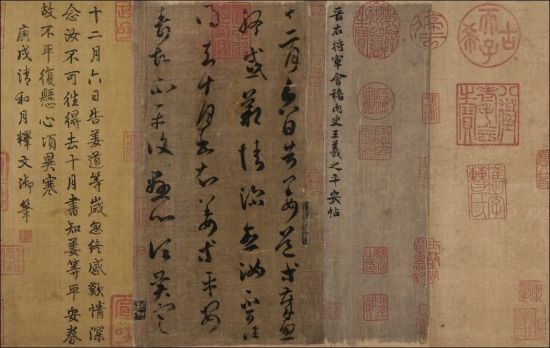 古稀天子
八徵耄念之寶
晉右將軍會稽內史王羲之平安帖
十二月六日告姜道等歲忽
終感歎情深念汝不可往
得去十月書知姜等平安
壽故不平復懸心頃異寒
十二月六日告姜道等歲忽終感歎情深
念汝不可往得去十月書知姜等平安壽
故不平復懸心頃異寒
庚戌清和月釋文御筆